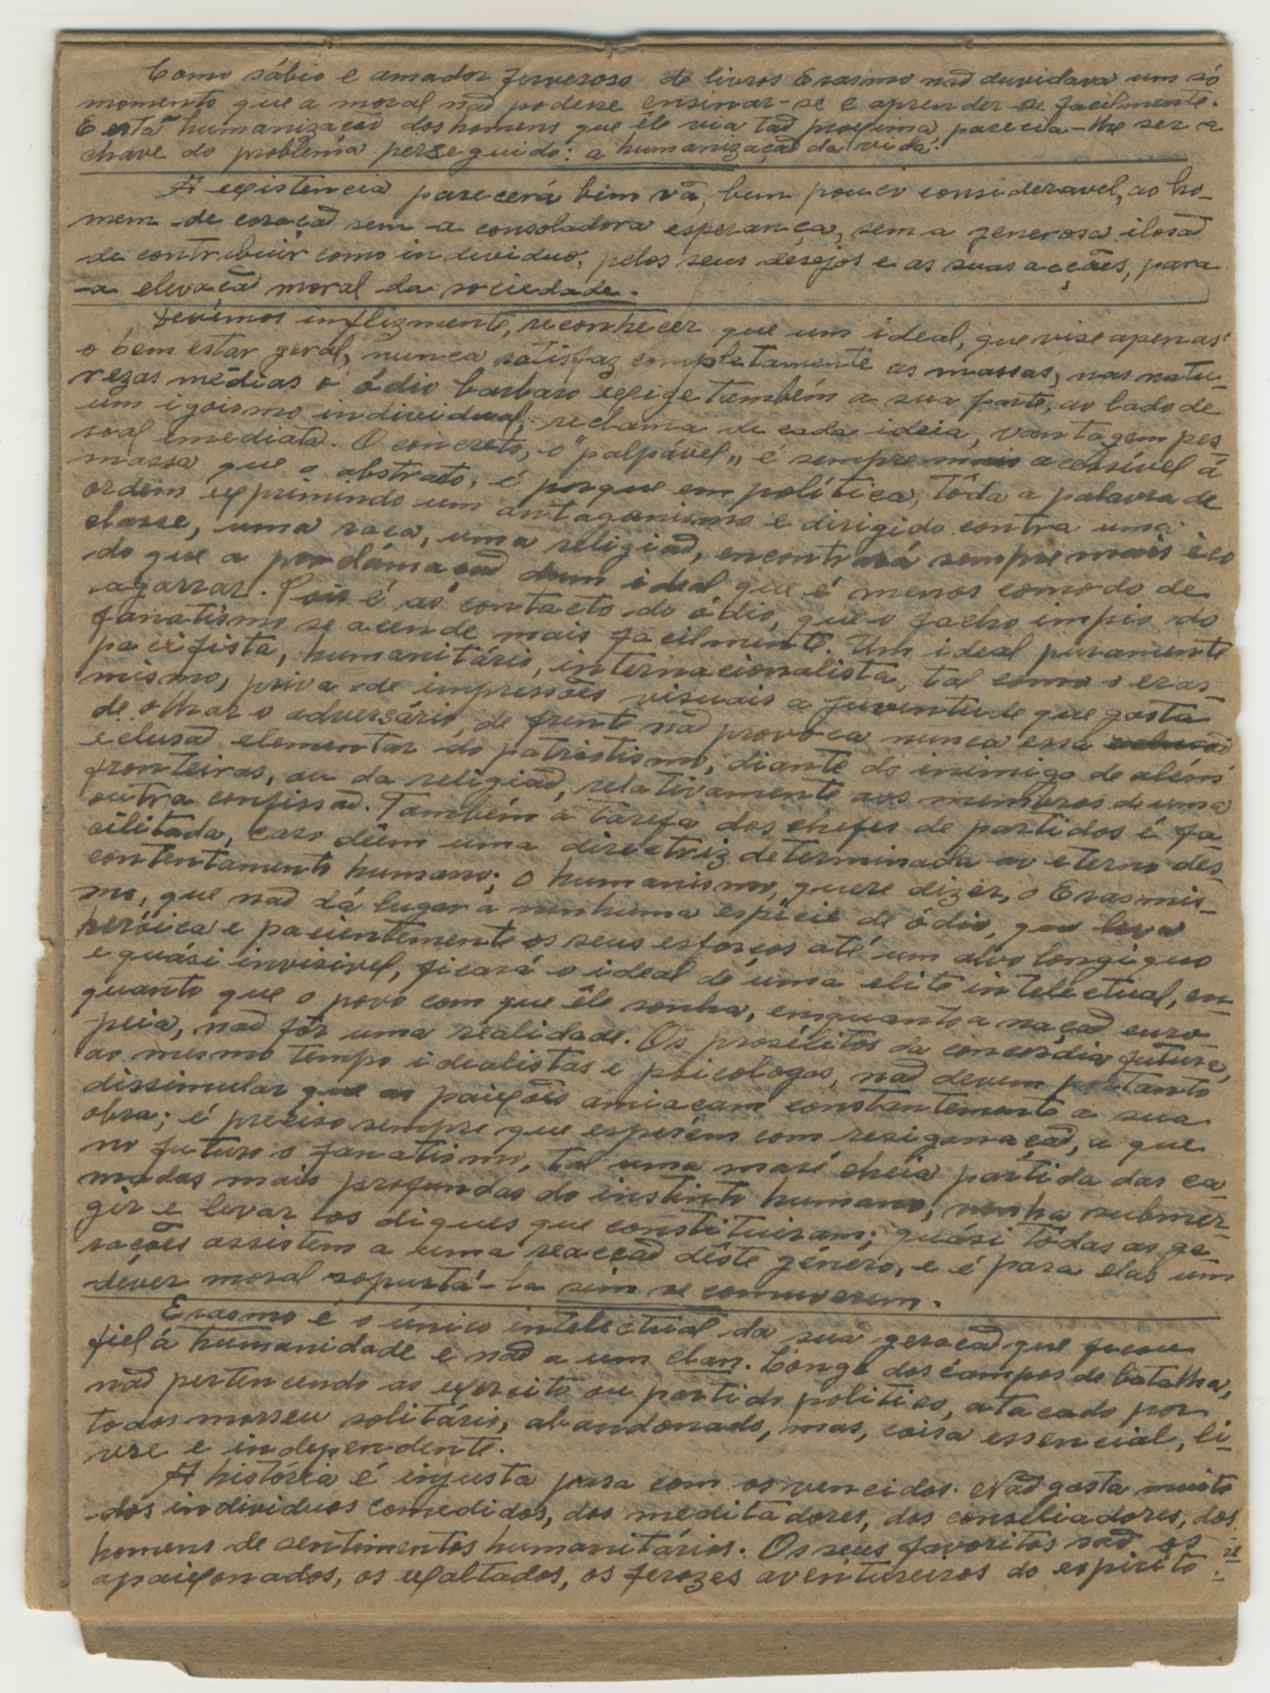 Como sábio e amador fervoroso de livros Erasmo não duvidava um só
momento que a moral não podesse ensinar-se e aprender-se facilmente.
E esta humanização dos homens que êle via tão proxima parecia-lhe ser a
chave do problema perseguido: a humanização da vida.
A existência parecerá bem vã, bem pouco consideravel, ao ho-
mem de coração sem a consoladora esperança, sem a generosa ilosão
de contribuir como individuo, pelos seus desejos e as suas acções, para
a elevação moral da sociedade.
Devemos inflizmente, reconhecer que um ideal, que vise apenas
o bem estar geral, nunca satisfaz completamente as massas; nas natu-
rezas médias o ódio barbaro exige também a sua parte, ao lado de
um igoismo individual, reclama de cada ideia, vantagem pes-
soal imediata. O concreto, o "palpável" é sempre mais acessível á
massa que o abstrato, é porque em política, tôda a palavra de
ordem exprimindo um antagonismo e dirigido contra uma
classe, uma raca, uma religião, encontrará sempre mais éco
do que a proclámação dum ideal que é menos comodo de
agarrar. Pois é ao contacto do ódio, que o facho impio do
fanatismo se acende mais facilmente. Um ideal puramente
pacifista, humanitário, internacionalista, tal como o eras-
mismo, priva de impressões visuais a juventude que gosta
de olhar o adversário, de frente não provoca nunca essa
eclusão elementar do patriotismo, diante do inimigo de além
fronteiras, ou da religião, relativamente aos membros de uma
outra confissão. Também a tarefa dos chefes de partidos é fa-
cilitada, caso dêem uma directriz determinada ao eterno des-
contentamento humano; o humanismo, quere dizer, o Erasmis-
mo, que não dá lugar a nenhuma espécie de ódio, que leva
heróica e pacientemente os seus esforços até um alvo longiquo
e quási invisivel, ficará o ideal de uma elite intelectual, en-
quanto que o povo com que êle sonha, emquanto a nação euro-
peia, não fôr uma realidade. Os prosélitos da concordia futura,
ao mesmo tempo idealistas e psicologos, não devem portanto
dissimular que as paixões amiaçam constantemente a sua
obra; é preciso sempre que esperem com resiganação, a que
no futuro o fanatismo, tal uma maré cheia partida das ca-
madas mais profundas do instinto humano, venha submer-
gir e levar os diques que constituiram; quási tôdas as ge-
rações assistem a uma reacção dêste género, e é para elas um
dever moral soportá-la sem se comoverem.
Erasmo é o único intelectual da sua geração que ficou
fiel á humanidade e não a um clan. Longe dos campos de batalha,
não pertencendo ao exercito ou partido politico, atacado por
todos morreu solitário, abandonado, mas, coisa essencial, li-
vre e independente.
A história é injusta para com os vencidos. Não gosta muito
dos individuos comedidos, dos meditadores, dos conciliadores, dos
homens de sentimentos humanitários. Os seus favoritos são os
apaixonados, os exaltados, os ferozes aventureiros do espirito